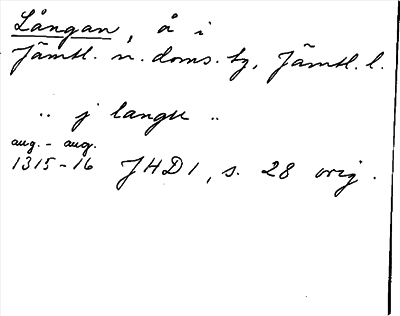 Långan, å i
Jämtl. n. doms. tg, Jämtl. l.
" j langu "
aug. - aug.
1315-16 JHD 1, s. 28 orig.